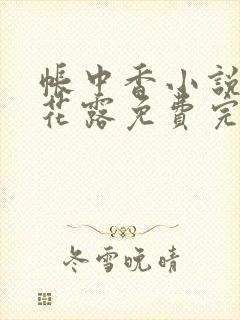 帐中香小說
花露免費完
冬雪晚晴